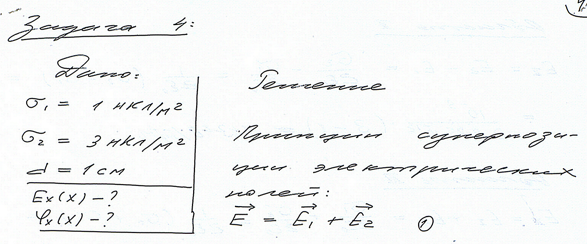 Задача 4:
Дано:
Решение
σ₁ = 1 нКл/м²
σ₂ = 3 нКл/м²
d = 1 см
Eₓ(x) – ?
φₓ(x) – ?
Принцип суперпози-
ции электрических
полей:
E⃗ = E⃗₁ + E⃗₂ ①